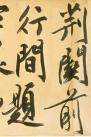 荊關前
行間題